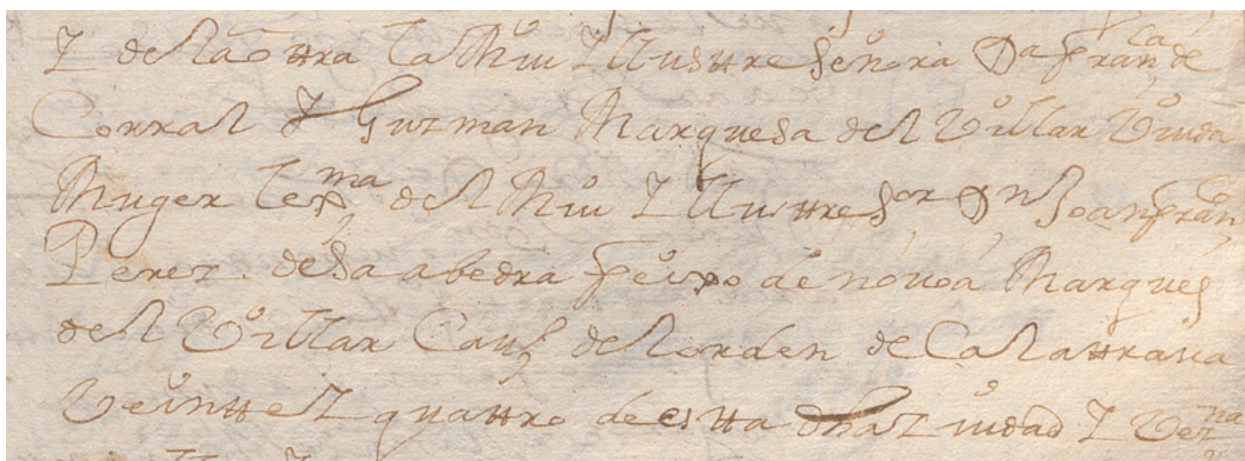 Y de la otra la Mui Yllustre señora Da franca de
Corral Y Guzman Marquesa del Villar Viuda
Muger lexma del Mui Yllustre sor Dn Joan franco
Perez de saabedra feixo de nouoa Marques
del Villar Cauo del orden de Calatraua
Veintte Y quattro de estta dha Ziudad Y Vezna